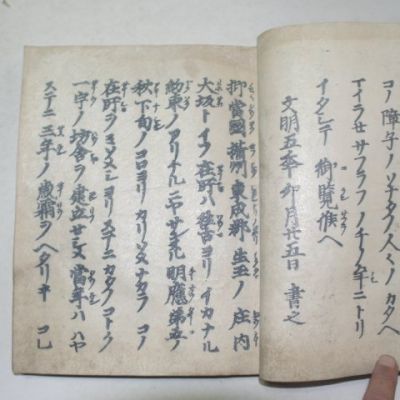 コノ障子ノソナタノ人々ノカタヘ
マイラセサフラフノチノ年ニトリ
イタシテ御覧候ヘ
文明五年卯月廿五日書之
抑當國攝州東成郡生玉ノ庄内
大坂トイフ在所ハ往古ヨリイカナル
約束ノアリケルニヤサンヌル明應第五ノ
秋下旬ノコロヨリカリソメナカラコノ
在所ヲミソメシヨリステニカタノコトク
一宇ノ坊舎ヲ建立セシメ當年ハハヤ
ステニ三年ノ歳霜ヲヘタリキコレ